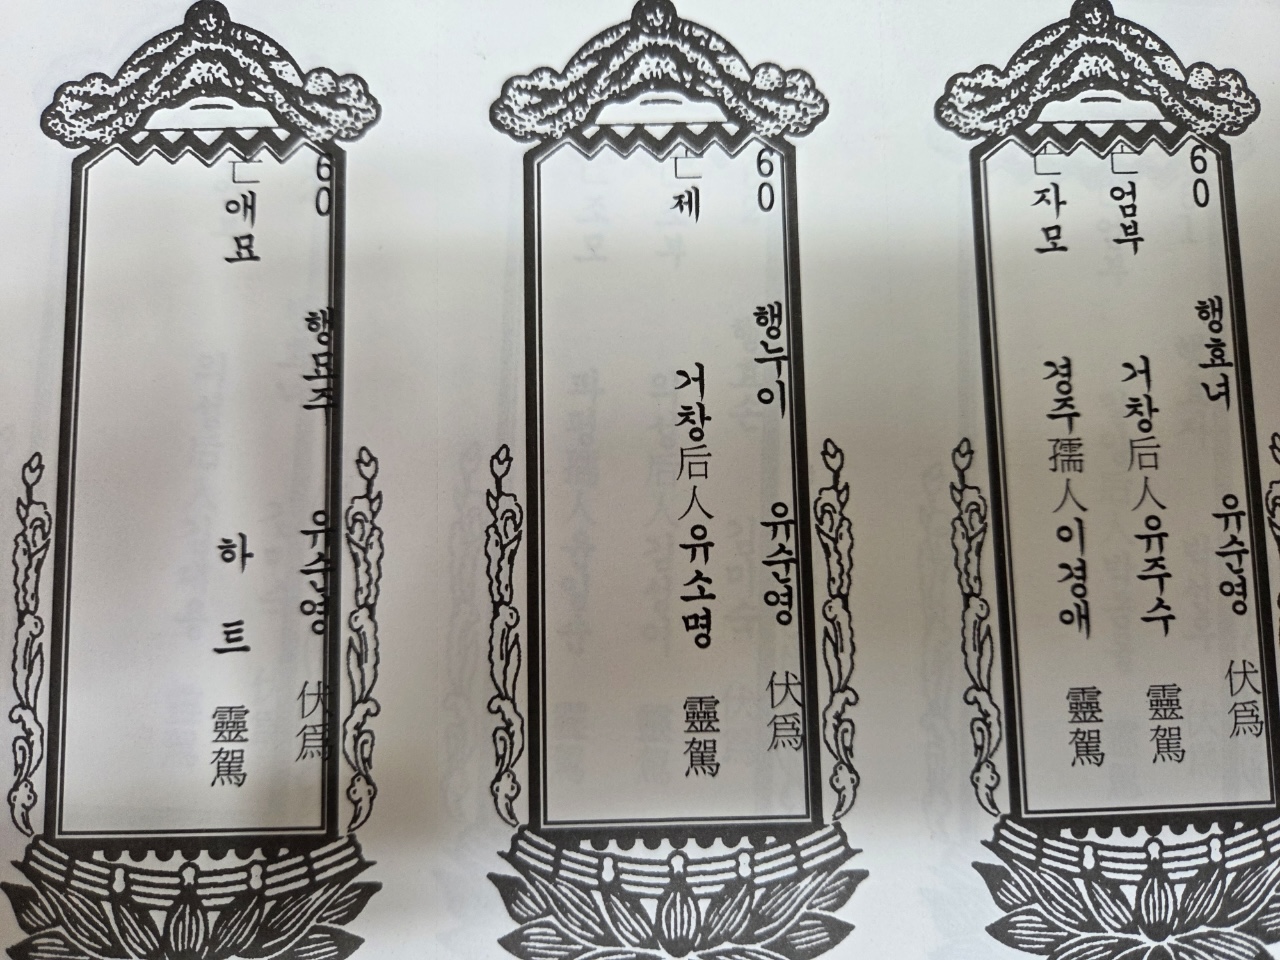 60 행효녀 유순영 伏爲
亡엄부 거창后人유주수 靈駕
亡자모 경주孺人이경애 靈駕
60 행누이 유순영 伏爲
亡제 거창后人유소명 靈駕
60 행묘주 유순영 伏爲
亡애묘 하트 靈駕